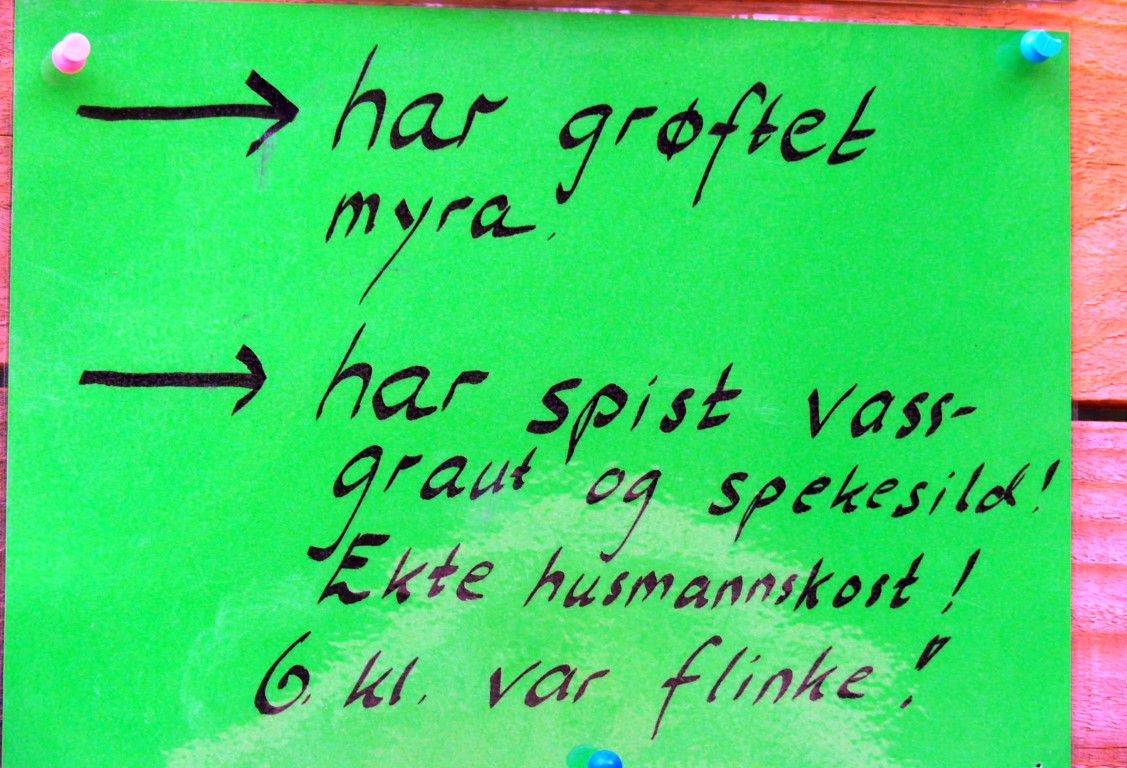 → har grøftet
myra.
→ har spist vass-
graut og spekesild!
Ekte husmannskost!
6. kl. var flinke!